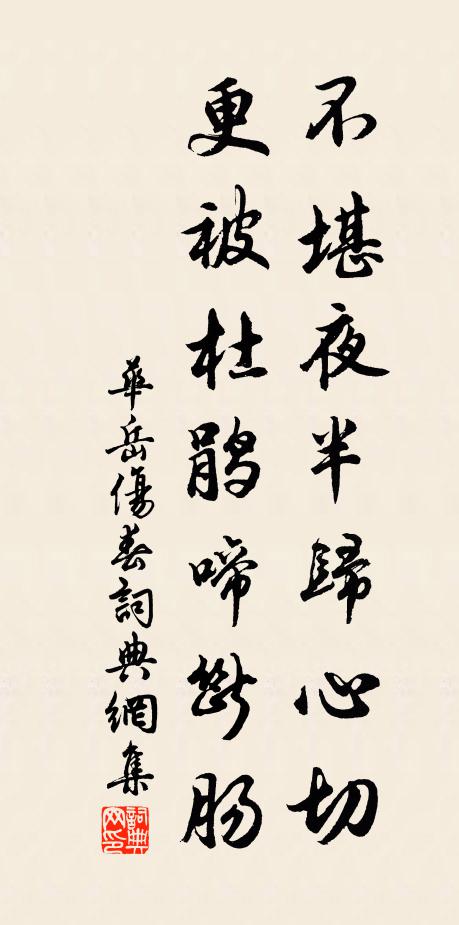 不堪夜半歸心切
更被杜鵑啼斷腸
華岳傷春詞典網集
詞典网印